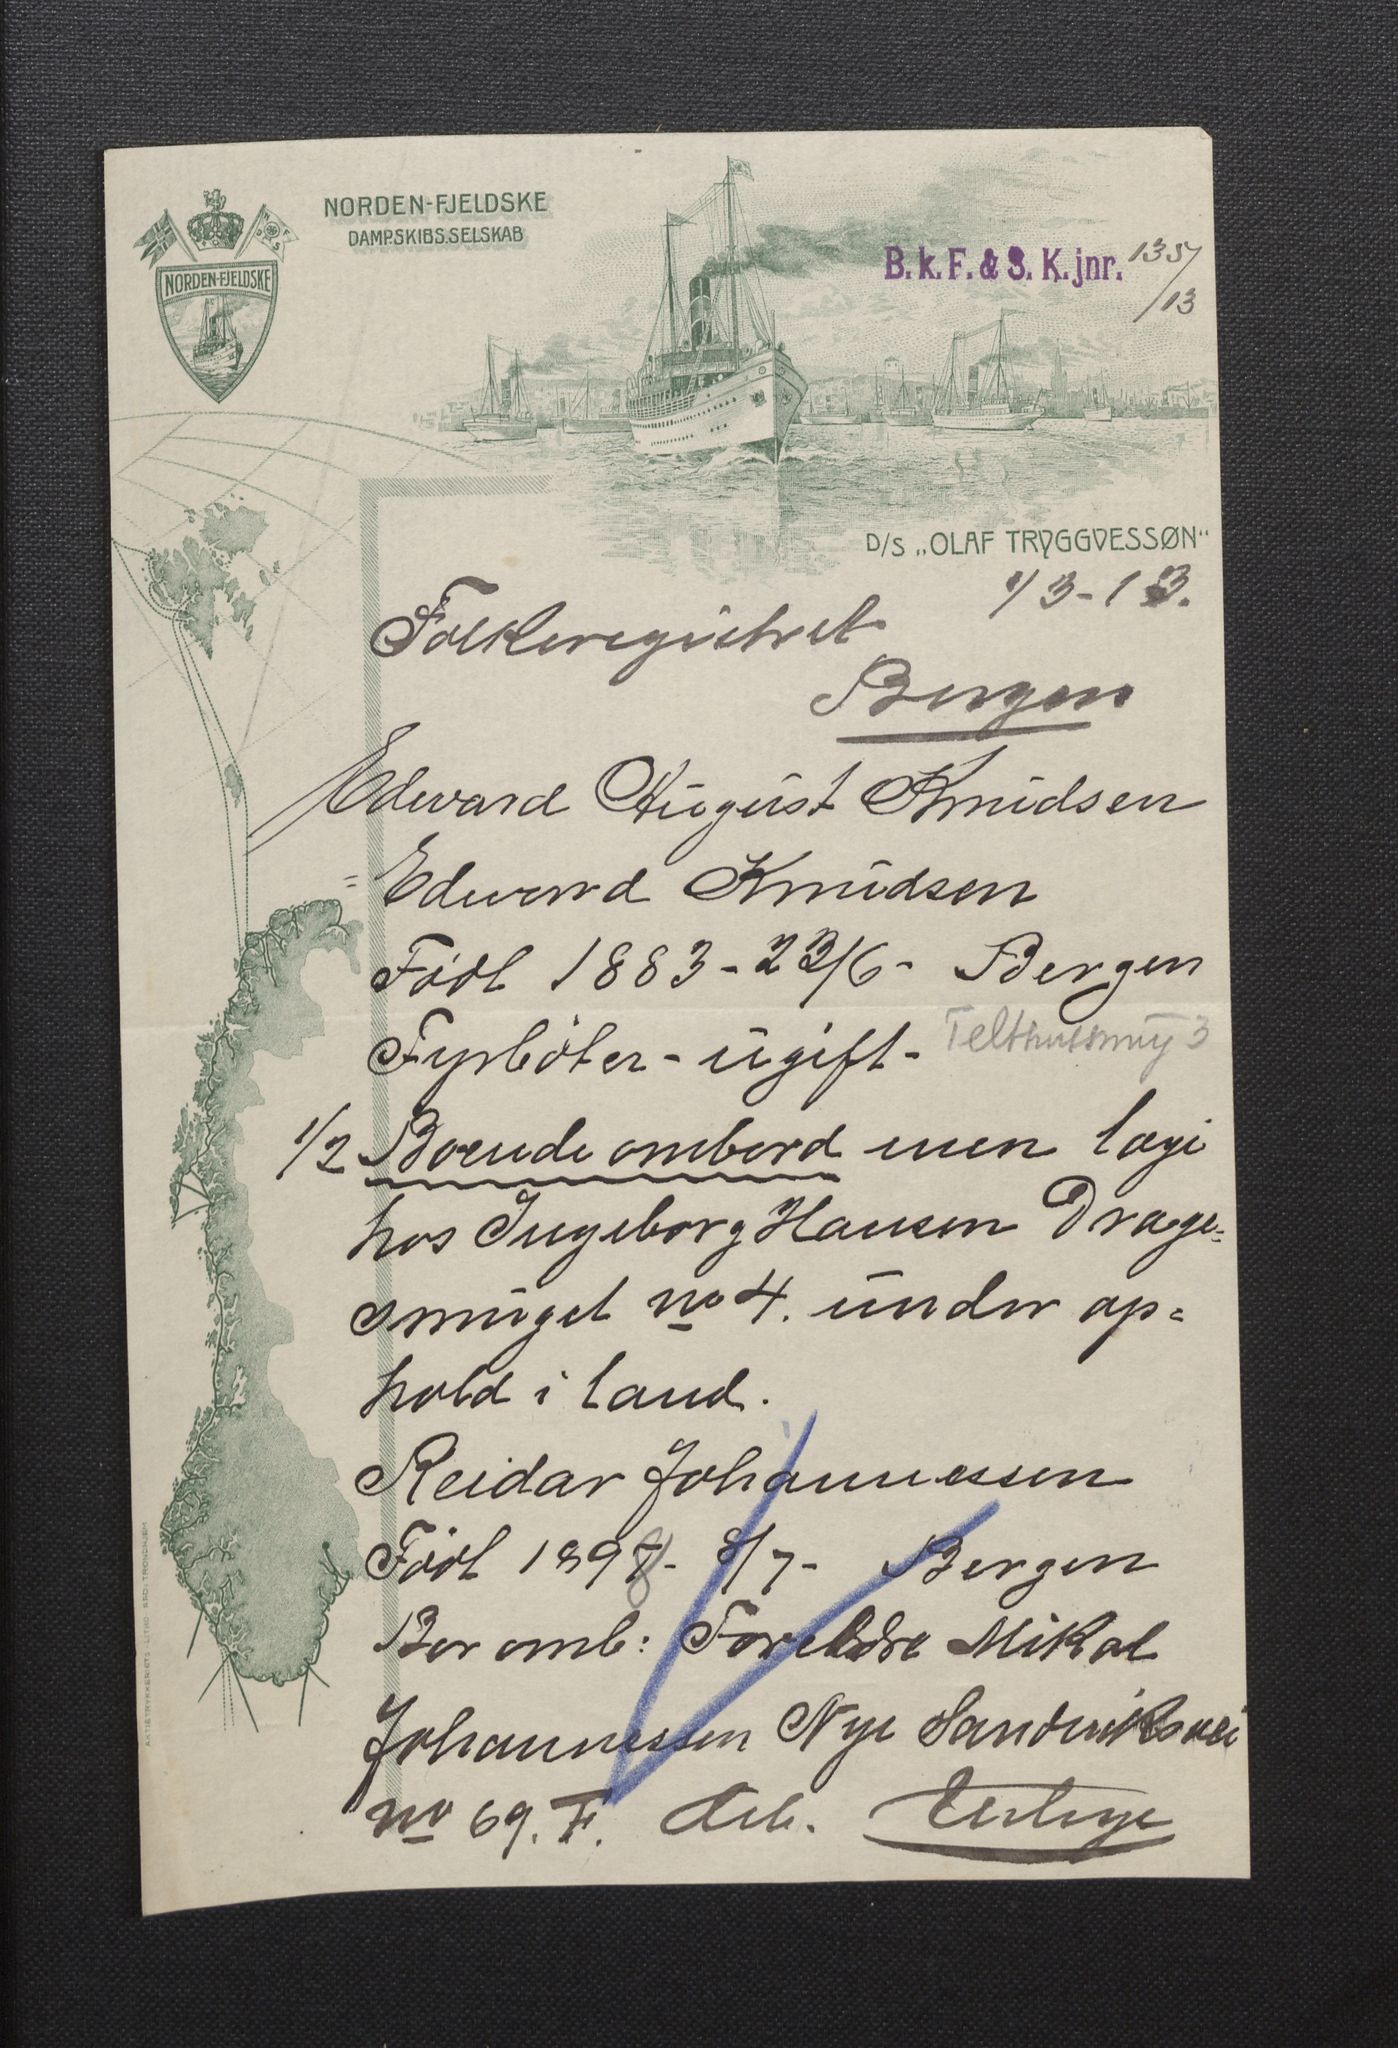 NORDEN-FJELDSKE
DAMPSKIBS.SELSKAB
NORDEN-FJELDSKE
N F
D S
B. k. F. & S. K. jnr. 135/13
D/S „OLAF TRYGGVESSØN“
1/3-13.
Folkeregistret
Bergen
Edward August Knudsen
= Edward Knudsen
Född 1883-23/6- Bergen
Fyrböter - ugift - Telthussmug 3
1/2 Boende ombord men logi
hos Ingeborg Hansen Drage-
smuget no 4. under op-
hold i land.
Reidar Johannessen
Född 1898- 8/7- Bergen
Bor omb: Foreldre Mikal
Johannessen Nye Sandviksvei
no 69. F. Arb.
AKTIETRYKKERIETS LITHO. ANST. TRONDHJEM